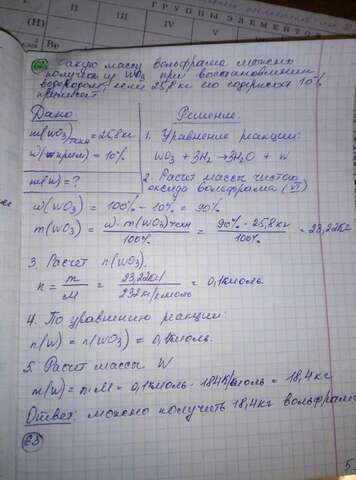 (H)
II
III
IV
V
ГРУППЫ ЭЛЕМЕНТОВ
Be
Какую массу вольфрама можно
получить из WO₃ при восстановлении
водородом, если 25,8 кг его содержится 10%
примесей?
Дано
m(WO₃)техн = 25,8 кг
W(прим) = 10%
m(W) = ?
Решение:
1. Уравнение реакции:
WO₃ + 3H₂ → 3H₂O + W
2. Расчёт массы чистого
оксида вольфрама (VI)
ω(WO₃) = 100% - 10% = 90%
m(WO₃) = ω · m(WO₃)техн / 100% = 90% · 25,8 кг / 100% = 23,22 кг
3. Расчёт n(WO₃).
n = m / M = 23,22 кг / 232 кг/кмоль = 0,1 кмоль
4. По уравнению реакции:
n(W) = n(WO₃) = 0,1 кмоль.
5. Расчёт массы W
m(W) = n·M = 0,1 кмоль · 184 К/кмоль = 18,4 кг
Ответ: можно получить 18,4 кг вольфрама
5